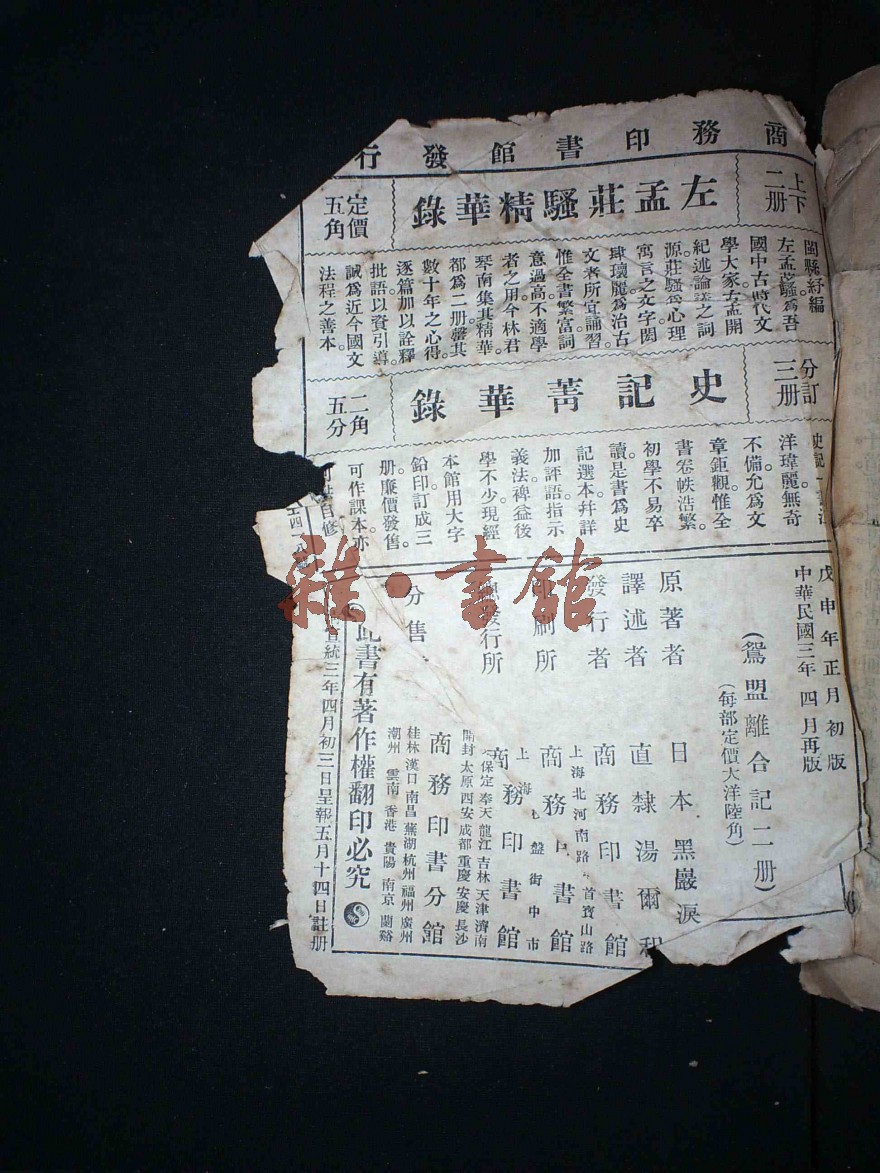 商務印書館發行
上下二册
左孟莊騷精華錄
定價五角
閩縣紓編
左孟莊騷爲吾
國中古時代文
學大家左孟開
紀述論議之詞
源莊騷爲心理
寓言之文字閎
肆瓌麗爲治古
文者所宜誦習
惟全書繁富詞
意過高不適學
者之用今林君
琴南集其精華。
都爲二册罄其
數十年之心得。
逐篇加以詮釋
批語以資引導。
誠爲近今國文
法程之善本。
分訂三册
史記菁華錄
二角五分
史記一書
洋瑋麗無奇
不備。允爲文
章鉅觀惟全
書卷帙浩繁
初學不易卒
讀。是書爲史
記選本幷詳
加評語指示
義法裨益後
學不少。現經
本館用大字
鉛印訂成三
册。廉價發售。
可作課本亦
自修
戊申年正月初版
中華民國三年四月再版
(鴛盟離合記二册)
(每部定價大洋陸角)
原著者 日本黑巖淚
譯述者 直隸湯爾和
發行者 商務印書館
上海北河南路 首寶山路
印刷所 商務印書館
上海 盤街中市
總發行所 商務印書館
保定奉天龍江吉林天津濟南
開封太原西安成都重慶安慶長沙
分售 商務印書分館
桂林漢口南昌蕪湖杭州福州廣州
潮州雲南香港貴陽南京蘭谿
此書有著作權翻印必究
宣統三年四月初三日呈報五月十四日註册
雜·書館